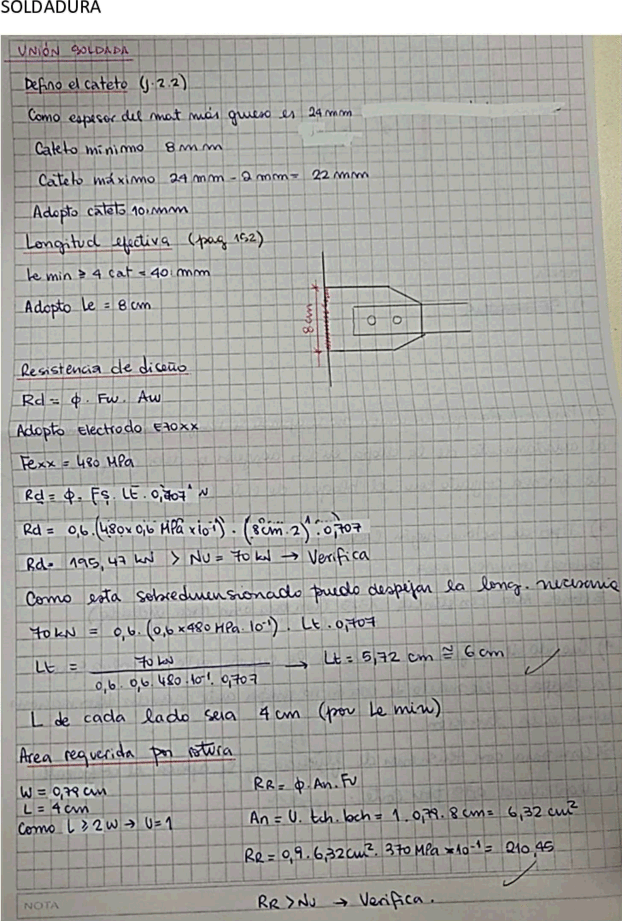 SOLDADURA
UNIÓN SOLDADA
Defino el cateto (J.2.2)
Como espesor del mat más grueso es 24 mm
Cateto mínimo 8 mm
Cateto máximo 24 mm - 2 mm = 22 mm
Adopto cateto 10 mm
Longitud efectiva (pag 152)
le min ≥ 4 cat = 40 mm
Adopto Le = 8 cm
8 cm
Resistencia de diseño
Rd = φ. Fw. Aw
Adopto Electrodo E70XX
Fexx = 480 MPa
Rd = φ. Fs. LE. 0,707
Rd = 0,6.(480x0,6 MPa x10⁻¹).(8cm.2).0,707
Rd= 195,47 kN > Nu = 70 kN → Verifica
Como esta sobredimensionado puedo despejar la long. necesaria
70 kN = 0,6.(0,6x480 MPa.10⁻¹). Lt.0,707
Lt = 70 kN / 0,6. 0,6. 480.10⁻¹. 0,707 → Lt = 5,72 cm ≅ 6 cm
L de cada lado seia 4 cm (por Le min)
Area requerida por rotura
W = 0,79 cm RR = φ. An. Fu
L = 4 cm
Como L ≥ 2W → U=1 An = U. tch. bch = 1.0,79. 8 cm = 6,32 cm²
RR = 0,9. 6,32 cm². 370 MPa x10⁻¹ = 210,45
RR > Nu → Verifica.
NOTA